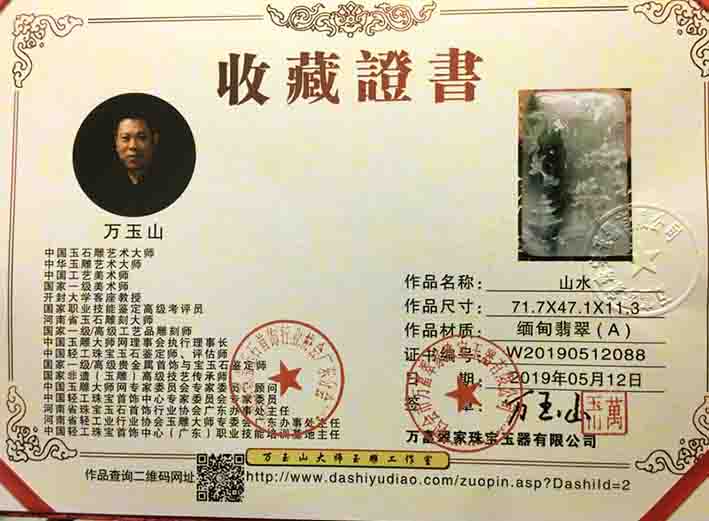 收藏證書
万玉山
中国玉石雕艺术大师
中华玉雕艺术大师
中国工艺美术师
国家一级美术师
开封大学客座教授
国家职业技能鉴定高级考评员
河南省玉石雕刻大师
国家一级/高级工艺品雕刻师
中国玉雕大师网理事会执行理事长
中国轻工珠宝玉石鉴定师、评估师
国家一级/高级贵金属首饰与宝玉石鉴定师
国家非遗（玉雕）高级技艺传承师
中国玉雕大师网专家委员会专家、顾问
中国轻工珠宝首饰中心专家委员会专家
河南省珠宝玉石首饰行业协会广东办事处主任
河南省轻工业行业协会玉雕大师专委会广东办事处主任
中国轻工珠宝首饰中心（广东）职业技能培训基地主任
作品名称: 山水
作品尺寸: 71.7X47.1X11.3
作品材质: 缅甸翡翠(A)
证书编号: W20190512088
日 期: 2019年05月12日
签 万玉山
万富翠家珠宝玉器有限公司
万玉山大师玉雕工作室
作品查询二维码网址
http://www.dashiyudiao.com/zuopin.asp?DashiId=2